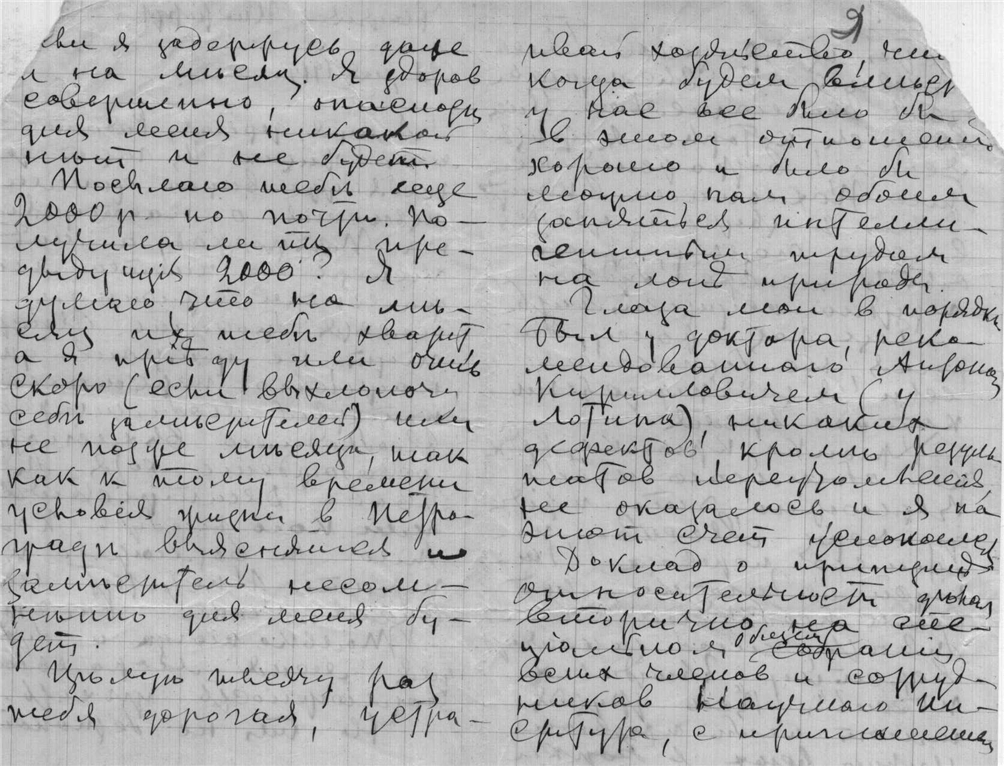 я задержусь даже
и на мѣсяц. Я здоров
совершенно, опасности
для меня никакой
нѣт и не будет.
Посылаю тебѣ еще
2000 р по почтѣ. По-
лучила ли ты пре-
дыдущія 2000? Я
думаю что на мѣ-
сяц их тебѣ хватит
а я пріѣду или очень
скоро (если выхлопочу
себѣ замѣстителей) или
не позже мѣсяца, так
как к тому времени
условія жизни в Петро-
градѣ выяснятся и
замѣститель несом-
нѣнно для меня бу-
дет.
Цѣлую тысячу раз
тебя дорогая, устра-
9
ивай хозяйство, чтобы
когда будем вмѣстѣ
у нас все было бы
в этом отношеніи
хорошо и было бы
можно нам обоим
заняться интелли-
гентным трудом
на лонѣ природы.
Глаза мои в порядкѣ
был у доктора, реко-
мендованнаго Антоном
Кирилловичем (у
), никаких
дефектов кромѣ резуль-
татов переутомленія
не оказалось и я на
этот счет успокоился
Доклад о принципѣ
относительности дѣлал
вторично на спе-
ціальном общем собраніи
всех членов и сотруд-
ников Научнаго Ин-
ститута, с приглашеніем